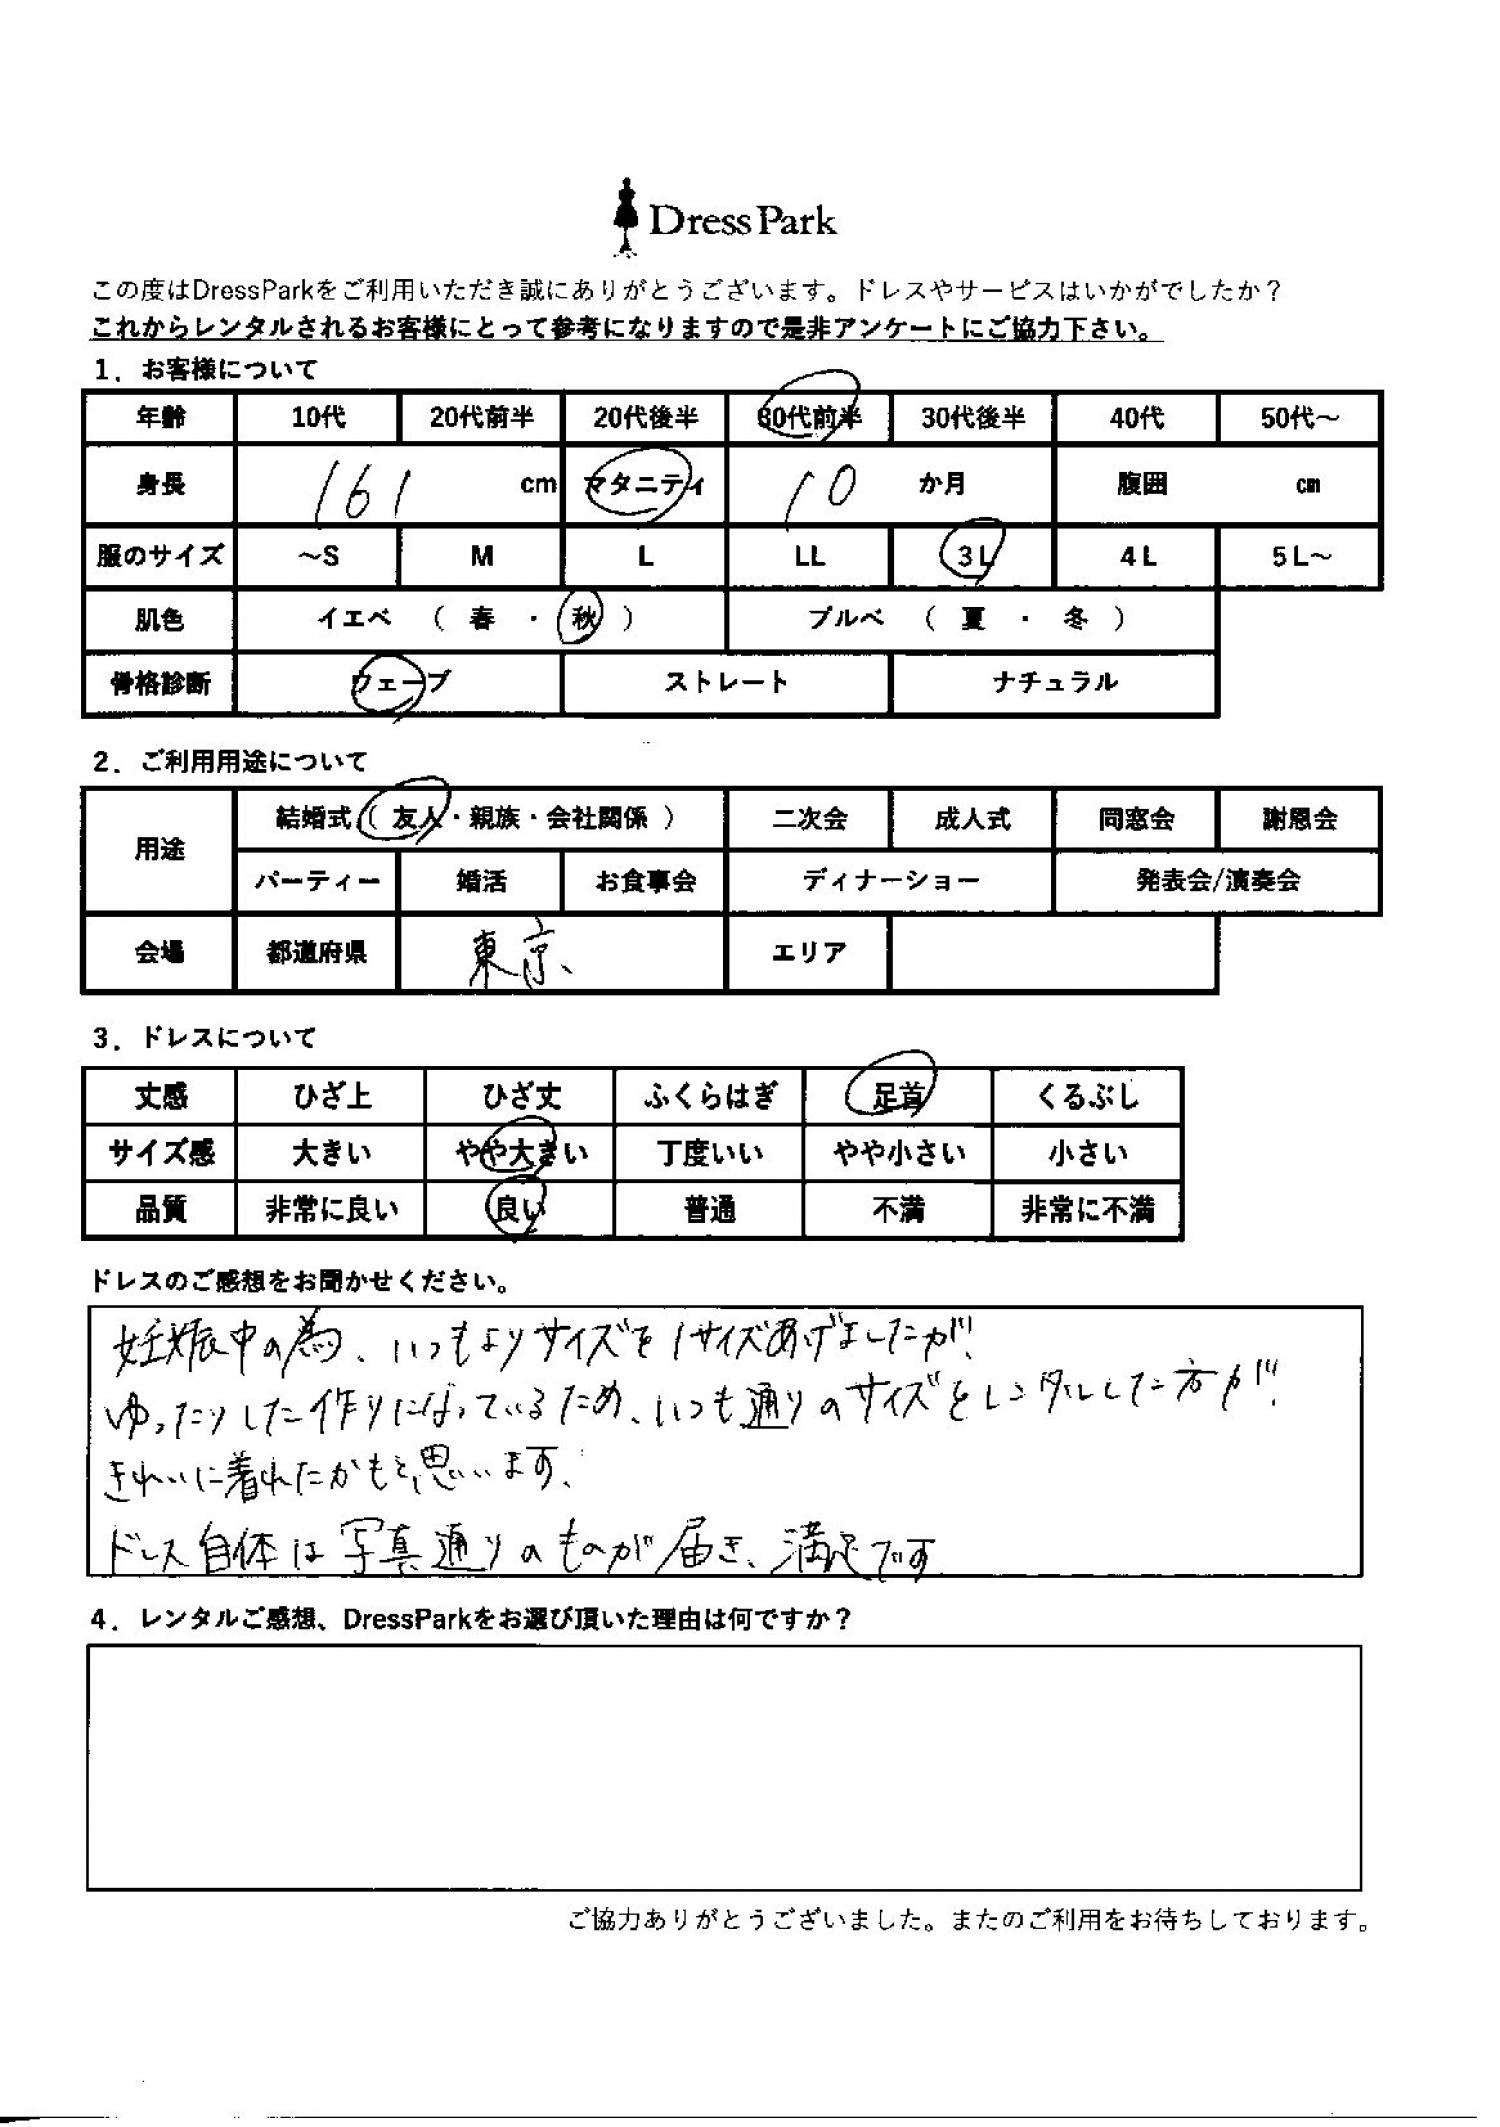 Dress Park
この度はDressParkをご利用いただき誠にありがとうございます。ドレスやサービスはいかがでしたか？
これからレンタルされるお客様にとって参考になりますので是非アンケートにご協力下さい。
1．お客様について
年齢 10代 20代前半 20代後半 30代前半 30代後半 40代 50代～
身長 161 cm マタニティ 10 か月 腹囲 ㎝
服のサイズ ～S M L LL 3L 4L 5L～
肌色 イエベ （ 春 ・ 秋 ） ブルベ （ 夏 ・ 冬 ）
骨格診断 ウェーブ ストレート ナチュラル
2．ご利用用途について
用途 結婚式（ 友人・親族・会社関係 ） 二次会 成人式 同窓会 謝恩会
パーティー 婚活 お食事会 ディナーショー 発表会/演奏会
会場 都道府県 東京、 エリア
3．ドレスについて
丈感 ひざ上 ひざ丈 ふくらはぎ 足首 くるぶし
サイズ感 大きい やや大きい 丁度いい やや小さい 小さい
品質 非常に良い 良い 普通 不満 非常に不満
ドレスのご感想をお聞かせください。
妊娠中の為、いつもよりサイズを1サイズあげましたが
ゆったりした作りになっているため、いつも通りのサイズをレンタルした方が
きれいに着れたかもと思います、
ドレス自体は写真通りのものが届き、満足です
4．レンタルご感想、DressParkをお選び頂いた理由は何ですか？
ご協力ありがとうございました。またのご利用をお待ちしております。